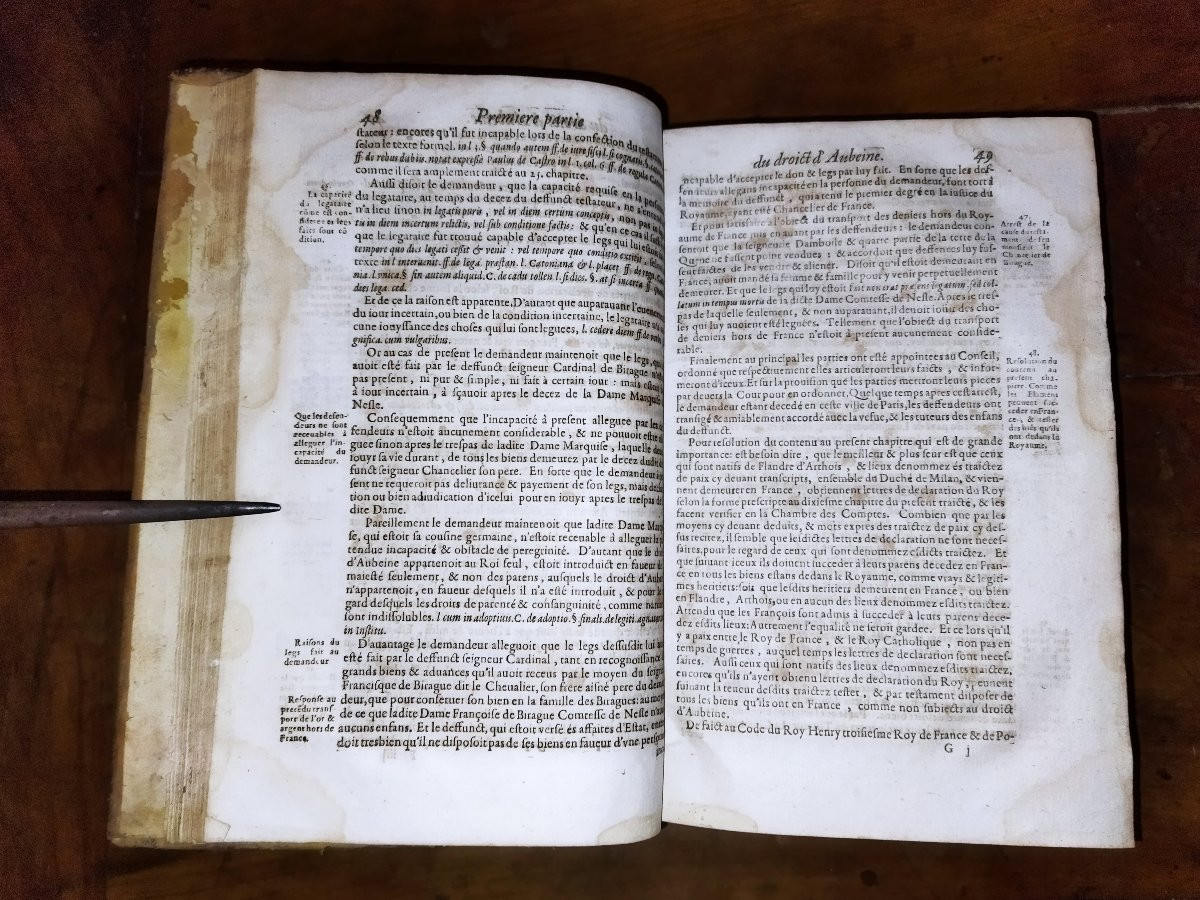 48 Premiere partie
stateur : encores qu'il fut incapable lors de la confection du
selon le texte formel. in l. 3. § quando autem ff. de iure fisci l. si cognatis
ff. de rebus dubiis. notat expressè Paulus de Castro in l. 1. col. 6 ff. de regula
comme il sera amplement traicté au 25. chapitre.
Aussi disoit le demandeur, que la capacité requise en la
du legataire, au temps du decez du deffunct testateur, ne
n'a lieu sinon in legatis puris, vel in diem certum conceptis, non pas
tu in diem incertum relictis, vel sub conditione factis: & qu'en ce cas il
que le legataire fut trouué capable d'accepter le legs qui lui
tempore quo dies legati cessit & venit : vel tempore quo conditio
texte in l interuenit. ff de lega. præstan. l. Catoniana & l. placet ff. de
nia. l. vnica. § sin autem aliquid. C. de cadu tollen l. si dies. §. at si incerta
dies lega. ced.
Et de ce la raison est apparente, D'autant que auparauant
du iour incertain, ou bien de la condition incertaine, le legataire
cune iouyssance des choses qui lui sont leguees, l. cedere diem ff. de
gnifica. cum vulgaribus.
Or au cas de present le demandeur maintenoit que le legs,
auoit esté fait par le deffunct seigneur Cardinal de Birague
pas present, ni pur & simple, ni fait à certain iour : mais
à iour incertain, à sçauoir apres le decez de la Dame
Nesle.
Consequemment que l'incapacité à present alleguee par les
fendeurs n'estoit aucunement considerable, & ne pouuoit estre
guee sinon apres le trespas de ladite Dame Marquise, laquelle
iouyr sa vie durant, de tous les biens demeurez par le decez
funct seigneur Chancelier son pere. En sorte que le demandeur
sent ne requeroit pas deliurance & payement de son legs, mais
tion ou bien adiudication d'icelui pour en iouyr apres le trespas de
dite Dame.
Pareillement le demandeur maintenoit que ladite Dame
se, qui estoit sa cousine germaine, n'estoit receuable à alleguer
tendue incapacité & obstacle de peregrinité. D'autant que le
d'Aubeine appartenoit au Roi seul, estoit introduict en faueur de
maiesté seulement, & non des parens, ausquels le droict
n'appartenoit, en faueur desquels il n'a esté introduit, & pour
gard desquels les droits de parenté & consanguinité, comme
sont indissolubles. l cum in adoptiuis. C. de adoptio. § finals. de legiti. agnatorum
in Institu.
D'auantage le demandeur alleguoit que le legs dessusdit lui
esté fait par le deffunct seigneur Cardinal, tant en recognoissance
grands biens & aduances qu'il auoit receus par le moyen du
Francisque de Birague dit le Cheualier, son frere aisné pere du
deur, que pour conseruer son bien en la famille des Biragues:
de ce que ladite Dame Françoise de Birague Comtesse de Nesle
aucuns enfans. Et le deffunct, qui estoit versé és affaires d'Estat,
doit tresbien qu'il ne disposoit pas de ses biens en faueur d'vne
La capacité
du legataire
côme est con-
siderée és legs
faits sous cô
dition.
Que les defen-
deurs ne sont
receuables à
alleguer l'in-
capacité du
demandeur.
Raisons du
legs fait au
demandeur
Response au
precedu trans-
port de l'or &
argent hors de
France.
du droict d'Aubeine. 49
incapable d'accepter le don & legs par luy fait. En sorte que les def-
fendeurs allegans incapacité en la personne du demandeur, font tort à
la memoire du deffunct, qui a tenu le premier degré en la iustice du
Royaume, ayant esté Chancelier de France.
Et pour satisfaire à l'obiect du transport des deniers hors du Roy-
aume de France mis en auant par les deffendeurs : le demandeur con-
sentoit que la seigneurie Damboise & quarte partie de la terre de la
Queuë ne fussent point vendues : & accordoit que deffences luy fus-
sent faictes de les vendre & aliener. Disoit qu'il estoit demeurant en
France, auoit mandé sa femme & famille pour y venir perpetuellement
demeurer. Et que le legs qui luy estoit fait non erat præsens legatum, sed col-
latum in tempus mortis de la dicte Dame Comtesse de Nesle. Apres le tres-
pas de laquelle seulement, & non auparauant, il deuoit iouir des cho-
ses qui luy auoient esté leguées. Tellement que l'obiect du transport
de deniers hors de France n'estoit à present aucunement conside-
rable.
Finalement au principal les parties ont esté appointees au Conseil,
ordonné que respectiuement elles articuleront leurs faicts, & infor-
meront d'iceux. Et sur la prouision que les parties mettront leurs pieces
par deuers la Cour pour en ordonner. Quelque temps apres cest arrest,
le demandeur estant decedé en ceste ville de Paris, les deffendeurs ont
transigé & amiablement accordé auec la vefue, & les tuteurs des enfans
du deffunct.
Pour resolution du contenu au present chapitre qui est de grande
importance: est besoin dire, que le meilleur & plus seur est que ceux
qui sont natifs de Flandre d'Arthois, & lieux denommez és traictez
de paix cy deuant transcripts, ensemble du Duché de Milan, & vien-
nent demeurer en France, obtiennent lettres de declaration du Roy
selon la forme prescripte au dixiesme chapitre du present traicté, & les
facent verifier en la Chambre des Comptes. Combien que par les
moyens cy deuant deduits, & mots exprés des traictez de paix cy des-
sus recitez, il semble que lesdictes lettres de declaration ne sont neces-
saires, pour le regard de ceux qui sont denommez esdicts traictez. Et
que suiuant iceux ils doiuent succeder à leurs parens decedez en Fran-
ce en tous les biens estans dedans le Royaume, comme vrays & legiti-
mes heritiers: soit que lesdits heritiers demeurent en France, ou bien
en Flandre, Arthois, ou en aucun des lieux denommez esdits traictez.
Attendu que les François sont admis à succeder à leurs parens dece-
dez esdits lieux: Autrement l'equalité ne seroit gardee. Et ce lors qu'il
y a paix entre le Roy de France, & le Roy Catholique, non pas en
temps de guerres, auquel temps les lettres de declaration sont neces-
saires. Aussi ceux qui sont natifs des lieux denommez esdits traictez,
encores qu'ils n'ayent obtenu lettres de declaration du Roy, peuuent
suiuant la teneur desdits traictez tester, & par testament disposer de
tous les biens qu'ils ont en France, comme non subiects au droict
d'Aubeine.
De faict au Code du Roy Henry troisiesme Roy de France & de Po-
G j
47.
Arrest de la
cause du testa-
ment de feu
monsieur le
Chancelier de
Birague.
48.
Resolution du
contenu au
present cha-
pitre. Comme
les Flamens
peuuent suc-
ceder en Fran-
ce, & tester
des biés qu'ils
ont dedans le
Royaume.